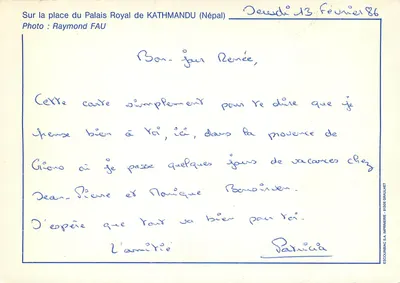 Sur la place du Palais Royal de KATHMANDU (Népal)
Photo : Raymond FAU
Jeudi 13 Février 86
Bon-jour Renée,
Cette carte simplement pour te dire que je
pense bien à toi, ici, dans la province de
où je passe quelques jours de vacances chez
Jean-Pierre et Monique
J'espère que tout va bien pour toi.
L'amitié
Patricia